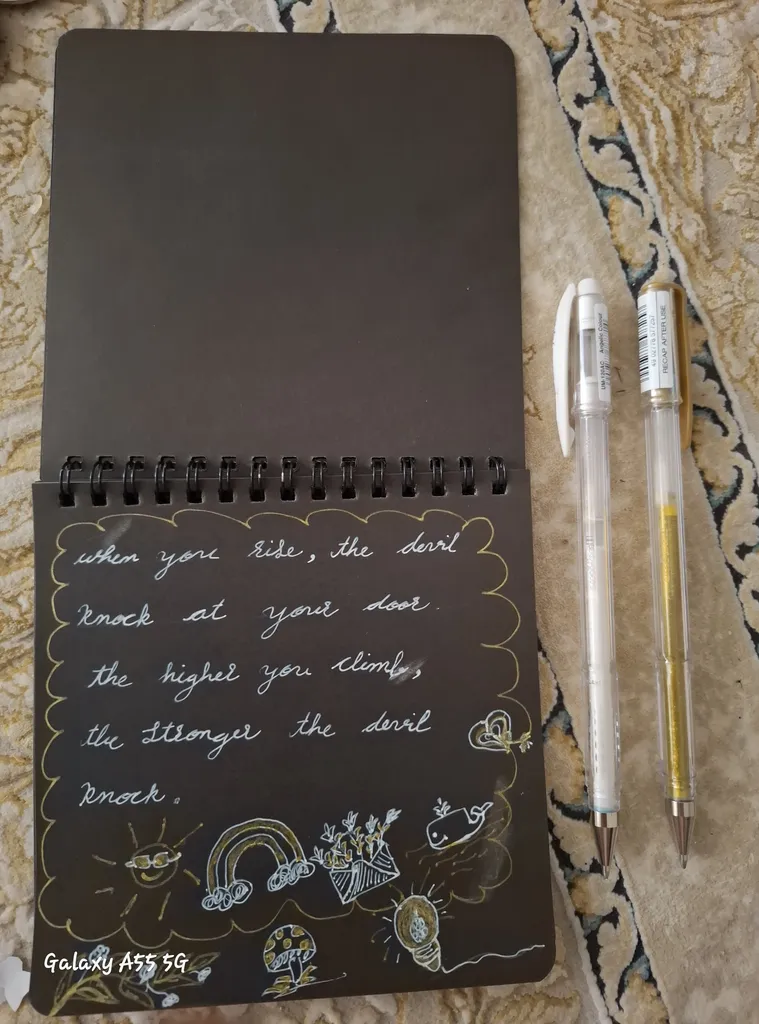 when you rise, the devil
knock at your door.
the higher you climb,
the stronger the devil
knock.
RECAP AFTER USE
Galaxy A55 5G